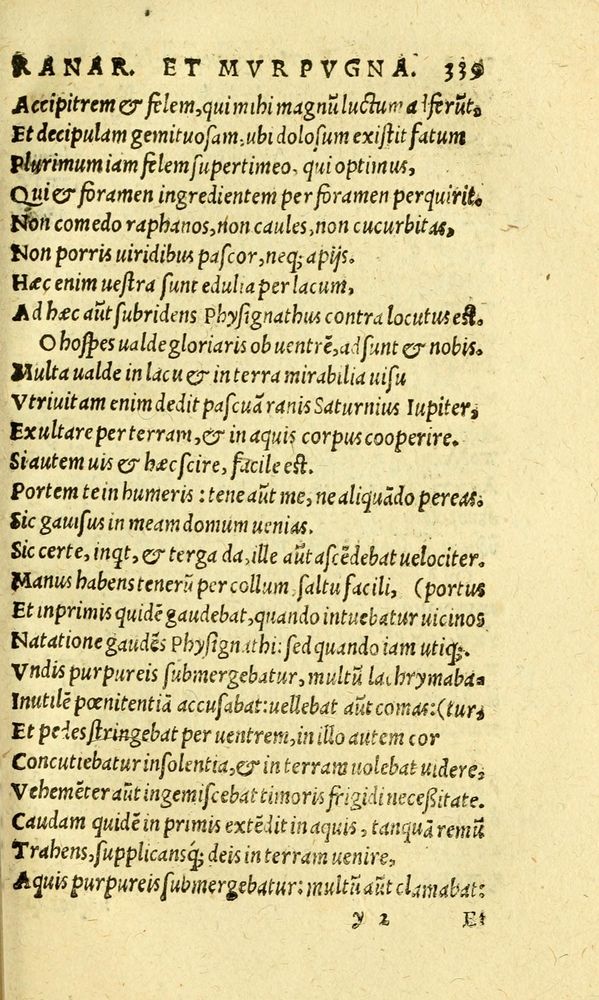 RANAR. ET MVR PVGNA. 339
Accipitrem & felem, qui mihi magnũ luctum afferũt,
Et decipulam gemituosam, ubi dolosum existit fatum
Plurimum iam felem supertimeo, qui optimus,
Qui & foramen ingredientem per foramen perquirit.
Non comedo raphanos, non caules, non cucurbitas,
Non porris uiridibus pascor, neq; apijs.
Hæc enim uestra sunt edulia per lacum,
Ad hæc aũt subridens Physignathus contra locutus est.
O hospes ualde gloriaris ob uentrẽ, adsunt & nobis.
Multa ualde in lacu & in terra mirabilia uisu
Vtriuitam enim dedit pascuã ranis Saturnius Iupiter,
Exultare per terram, & in aquis corpus cooperire.
Si autem uis & hæc scire, facile est.
Portem te in humeris: tene aũt me, ne aliquãdo pereas.
Sic gauisus in meam domum uenias.
Sic certe, inqt, & terga da, ille aũt ascẽdebat uelociter.
Manus habens tenerũ per collum saltu facili, (portus
Et inprimis quidẽ gaudebat, quando intuebatur uicinos
Natatione gaudẽs Physignathi: sed quando iam utiq;.
Vndis purpureis submergebatur, multũ lachrymaba-
Inutilẽ pœnitentiã accusabat: uellebat aũt comas: (tur,
Et pedes stringebat per uentrem, in illo autem cor
Concutiebatur insolentia, & in terram uolebat uidere,
Vehemẽter aũt ingemiscebat timoris frigidi necessitate.
Caudam quidẽ in primis extẽdit in aquis, tanquã remũ
Trahens, supplicansq; deis in terram uenire,
Aquis purpureis submergebatur: multũ aũt clamabat:
y 2 Et